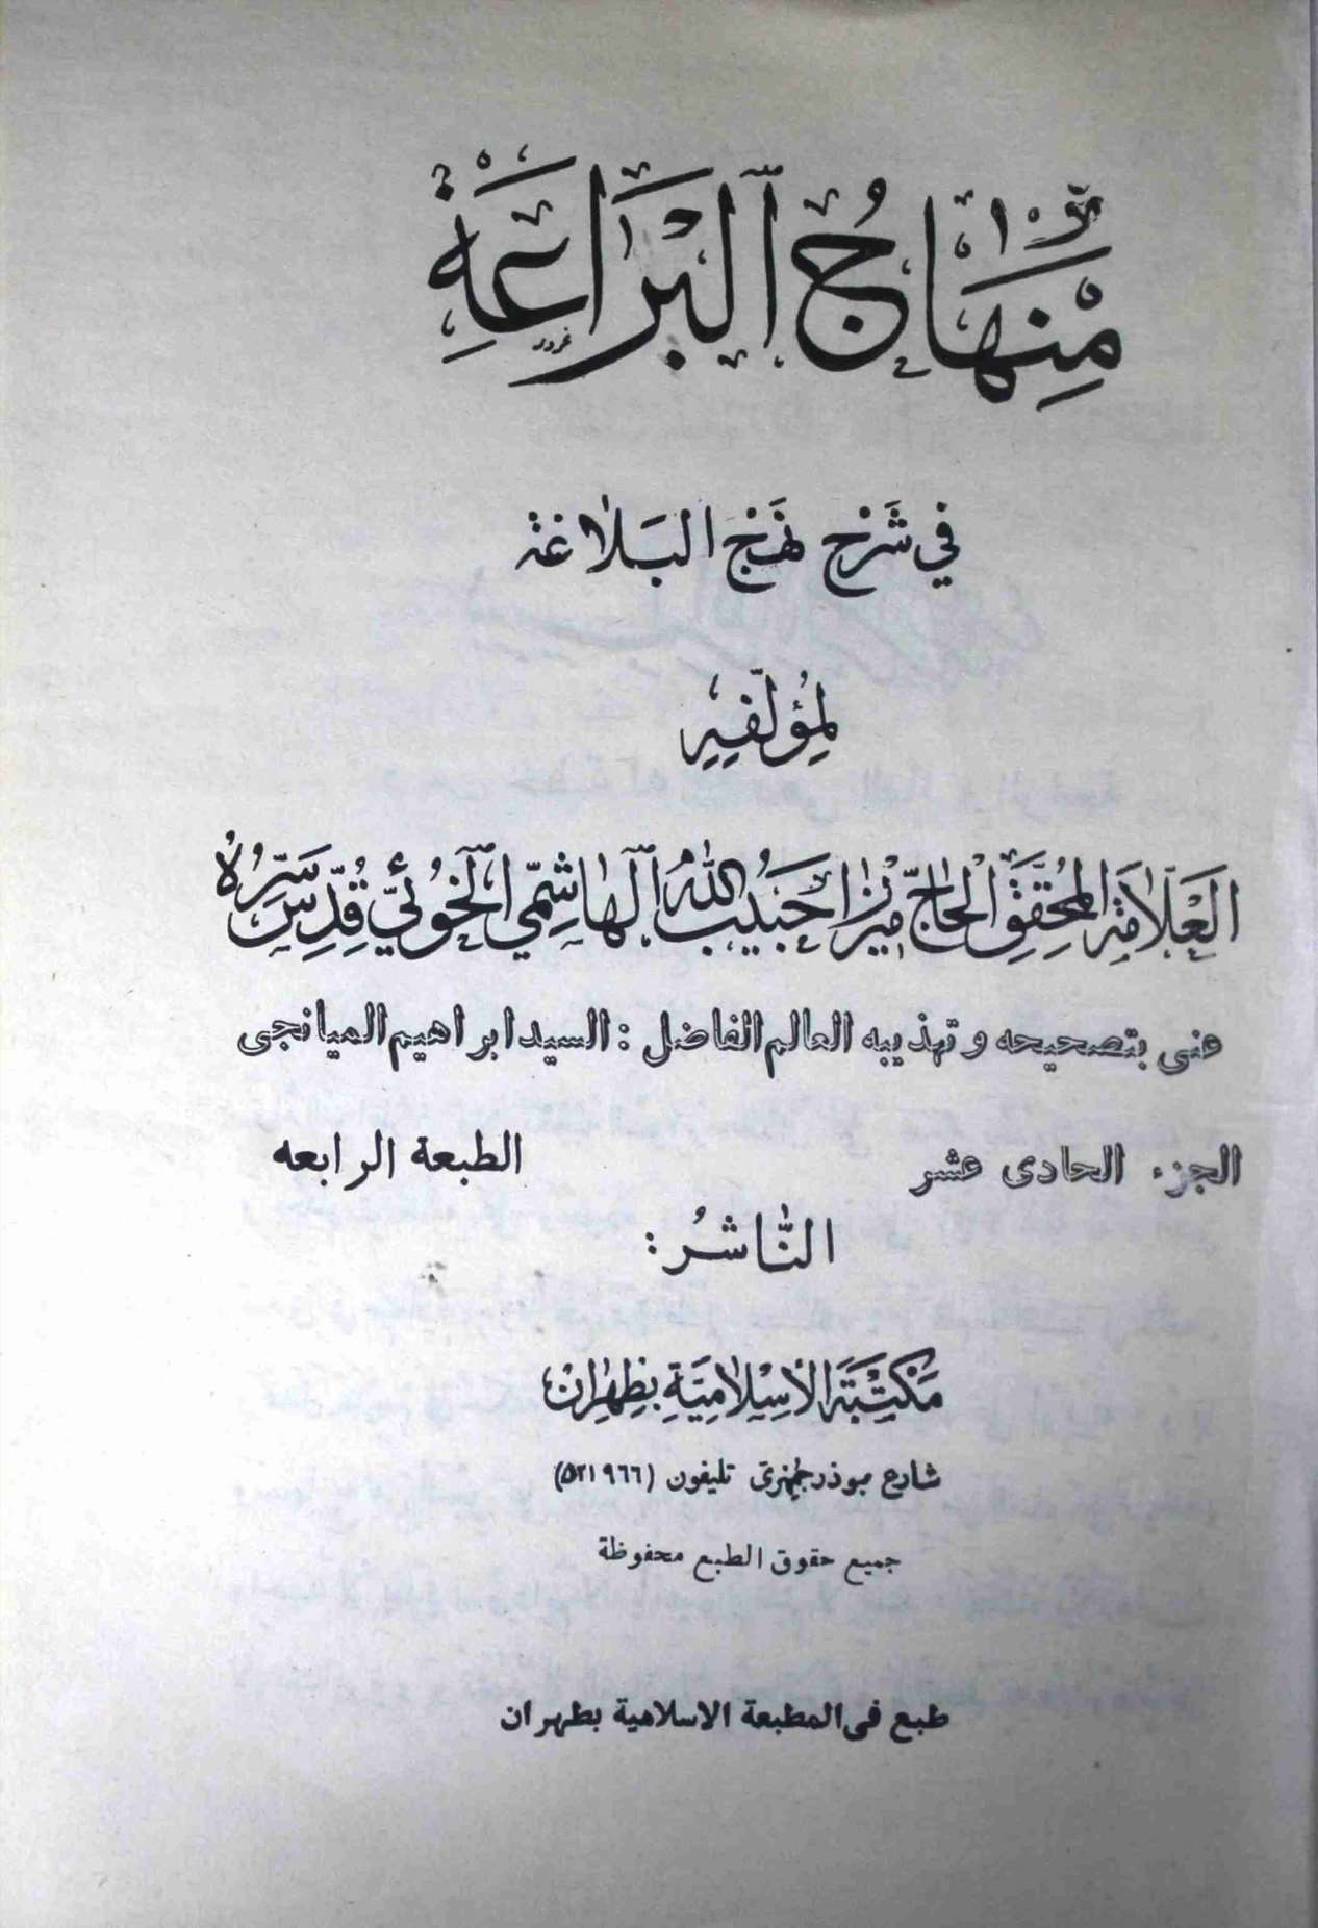 مِنْهَاجُ ٱلْبَرَاعَةِ
في شَرْحِ نَهْجِ البَلاغَة
لِمُؤلِّفِهِ
العَلّامَة المُحَقِّقِ الحَاجّ مِيْرزَا حَبيبُ اللهُ ٱلهَاشِمِّي ٱلْخُوئيِّ قُدِّسَ سَرّهُ
عنى بتصحيحه و تهذيبه العالم الفاضل : السيد ابراهيم الميانجى
الجزء الحادى عشر
الطبعة الرابعه
النَّاشرُ :
مَكْتَبَة الاِسْلامِيَّةِ بِطِهرانْ
شارع بوذرجمهرى تليفون (٥٢١٩٦٦)
جميع حقوق الطبع محفوظة
طبع فى المطبعة الاسلامية بطهران